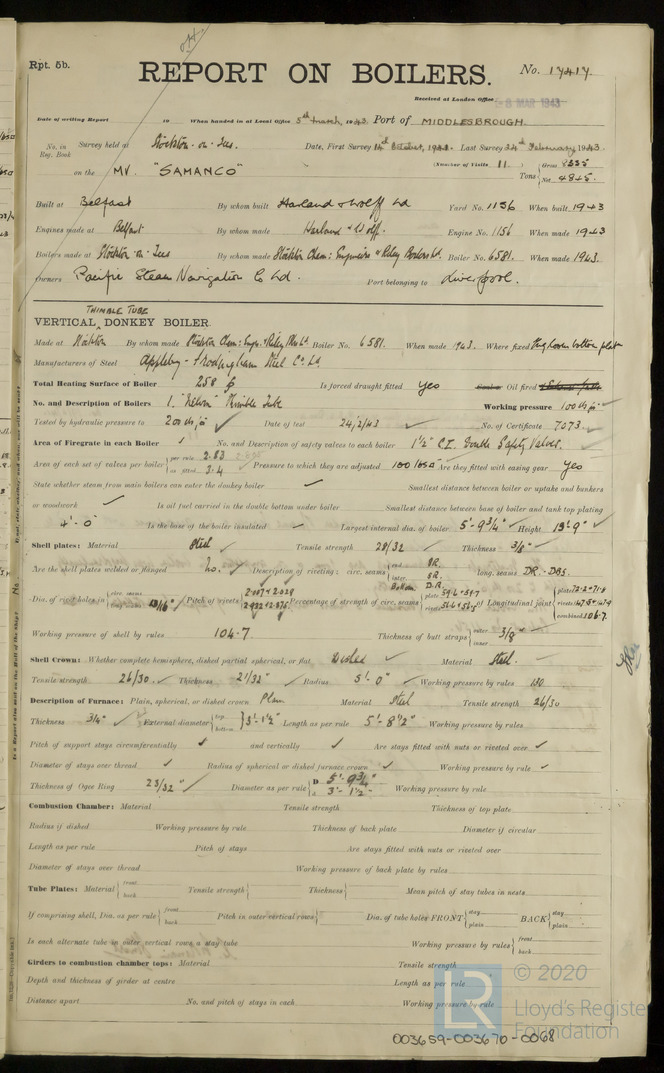 Rpt. 5b.
REPORT ON BOILERS.
No. 17417
Received at London Office 8 MAR 1943
Date of writing Report 19 When handed in at Local Office 5th March, 1943 Port of MIDDLESBROUGH.
No. in Reg. Book Survey held at Stockton-on-Tees. Date, First Survey 1942 Last Survey 24th February 1943.
(Number of Visits 11 )
on the MV. "SAMANCO" Tons Gross 8336 Net 4848.
Built at Belfast By whom built Harland & Wolff Ld Yard No. 1156 When built 1943
Engines made at Belfast By whom made Harland & Wolff. Engine No. 1156 When made 1943
Boilers made at Stockton-on-Tees By whom made Stockton Chem: Engineers & Riley Boilers Ld. Boiler No. 6581. When made 1943.
Owners Pacific Steam Navigation Co Ld. Port belonging to Liverpool.
THIMBLE TUBE
VERTICAL DONKEY BOILER.
Made at Stockton By whom made Stockton Chem: Engrs. & Riley Boilers Ld. Boiler No. 6581. When made 1943. Where fixed
Manufacturers of Steel Appleby-Frodingham Steel Co. Ld.
Total Heating Surface of Boiler 258 Is forced draught fitted Yes Oil fired
No. and Description of Boilers 1. Thimble Tube Working pressure 100
Tested by hydraulic pressure to 200 Date of test 24/2/43 No. of Certificate 7073
Area of Firegrate in each Boiler No. and Description of safety valves to each boiler 1½" C.I. Double Safety Valves.
Area of each set of valves per boiler per rule 2.83 as fitted 3.4 Pressure to which they are adjusted Are they fitted with easing gear Yes
State whether steam from main boilers can enter the donkey boiler Smallest distance between boiler or uptake and bunkers
or woodwork Is oil fuel carried in the double bottom under boiler Smallest distance between base of boiler and tank top plating
4'-0" Is the base of the boiler insulated Largest internal dia. of boiler 5'-9¾" Height
Shell plates: Material Steel Tensile strength 28/32 Thickness 3/8"
Are the shell plates welded or flanged No. Description of riveting: circ. seams end inter. SR. long. seams DR. DBS.
Dia. of rivet holes in circ. seams Pitch of rivets Percentage of strength of circ. seams plate rivets of Longitudinal joint plate rivets combined 106.7.
Working pressure of shell by rules 104.7 Thickness of butt straps outer inner 3/8"
Shell Crown: Whether complete hemisphere, dished partial spherical, or flat Dished Material Steel.
Tensile strength 26/30 Thickness 21/32" Radius 5'-0" Working pressure by rules 180
Description of Furnace: Plain, spherical, or dished crown Plain Material Steel Tensile strength 26/30
Thickness 3/4" External diameter top bottom 3'-1½" Length as per rule 5'-8½" Working pressure by rules
Pitch of support stays circumferentially and vertically Are stays fitted with nuts or riveted over
Diameter of stays over thread Radius of spherical or dished furnace crown Working pressure by rule
Thickness of Ogee Ring 23/32" Diameter as per rule D 5'-9¾" d 3'-1½" Working pressure by rule
Combustion Chamber: Material Tensile strength Thickness of top plate
Radius if dished Working pressure by rule Thickness of back plate Diameter if circular
Length as per rule Pitch of stays Are stays fitted with nuts or riveted over
Diameter of stays over thread Working pressure of back plate by rules
Tube Plates: Material front back Tensile strength Thickness Mean pitch of stay tubes in nests
If comprising shell, Dia. as per rule front back Pitch in outer vertical rows Dia. of tube holes FRONT stay plain BACK stay plain
Is each alternate tube in outer vertical rows a stay tube Working pressure by rules front back
Girders to combustion chamber tops: Material Tensile strength
Depth and thickness of girder at centre Length as per rule
Distance apart No. and pitch of stays in each Working pressure by rule
LR © 2020
Lloyd's Register
Foundation
003659-003670-0068